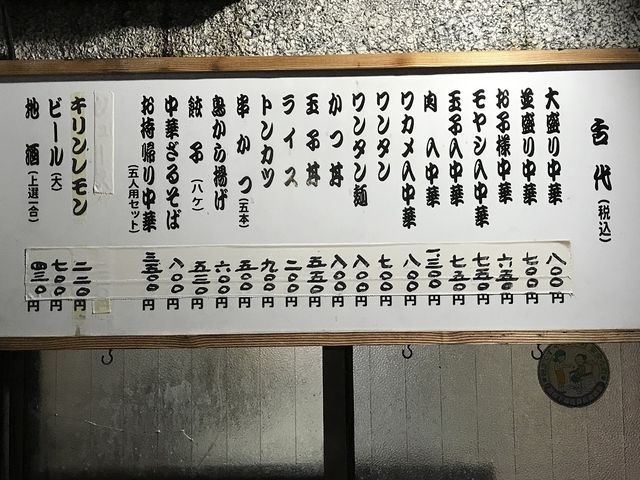 舌代(税込)
大盛り中華 八〇〇円
並盛り中華 七〇〇円
お子様中華 六五〇円
モヤシ入中華 七五〇円
玉子入中華 七五〇円
肉入中華 円
ワカメ入中華 八〇〇円
ワンタン 七〇〇円
ワンタン麺 八〇〇円
かつ丼 八〇〇円
玉子丼 五五〇円
ライス 二〇〇円
トンカツ 九〇〇円
串かつ(五本) 五〇〇円
鳥から揚げ 六〇〇円
餃子(八ケ) 五三〇円
中華ざるそば 八〇〇円
お持帰り中華(五人用セット) 三、五〇〇円
キリンレモン 二二〇円
ビール(大) 七〇〇円
地酒(上選一合) 四三〇円